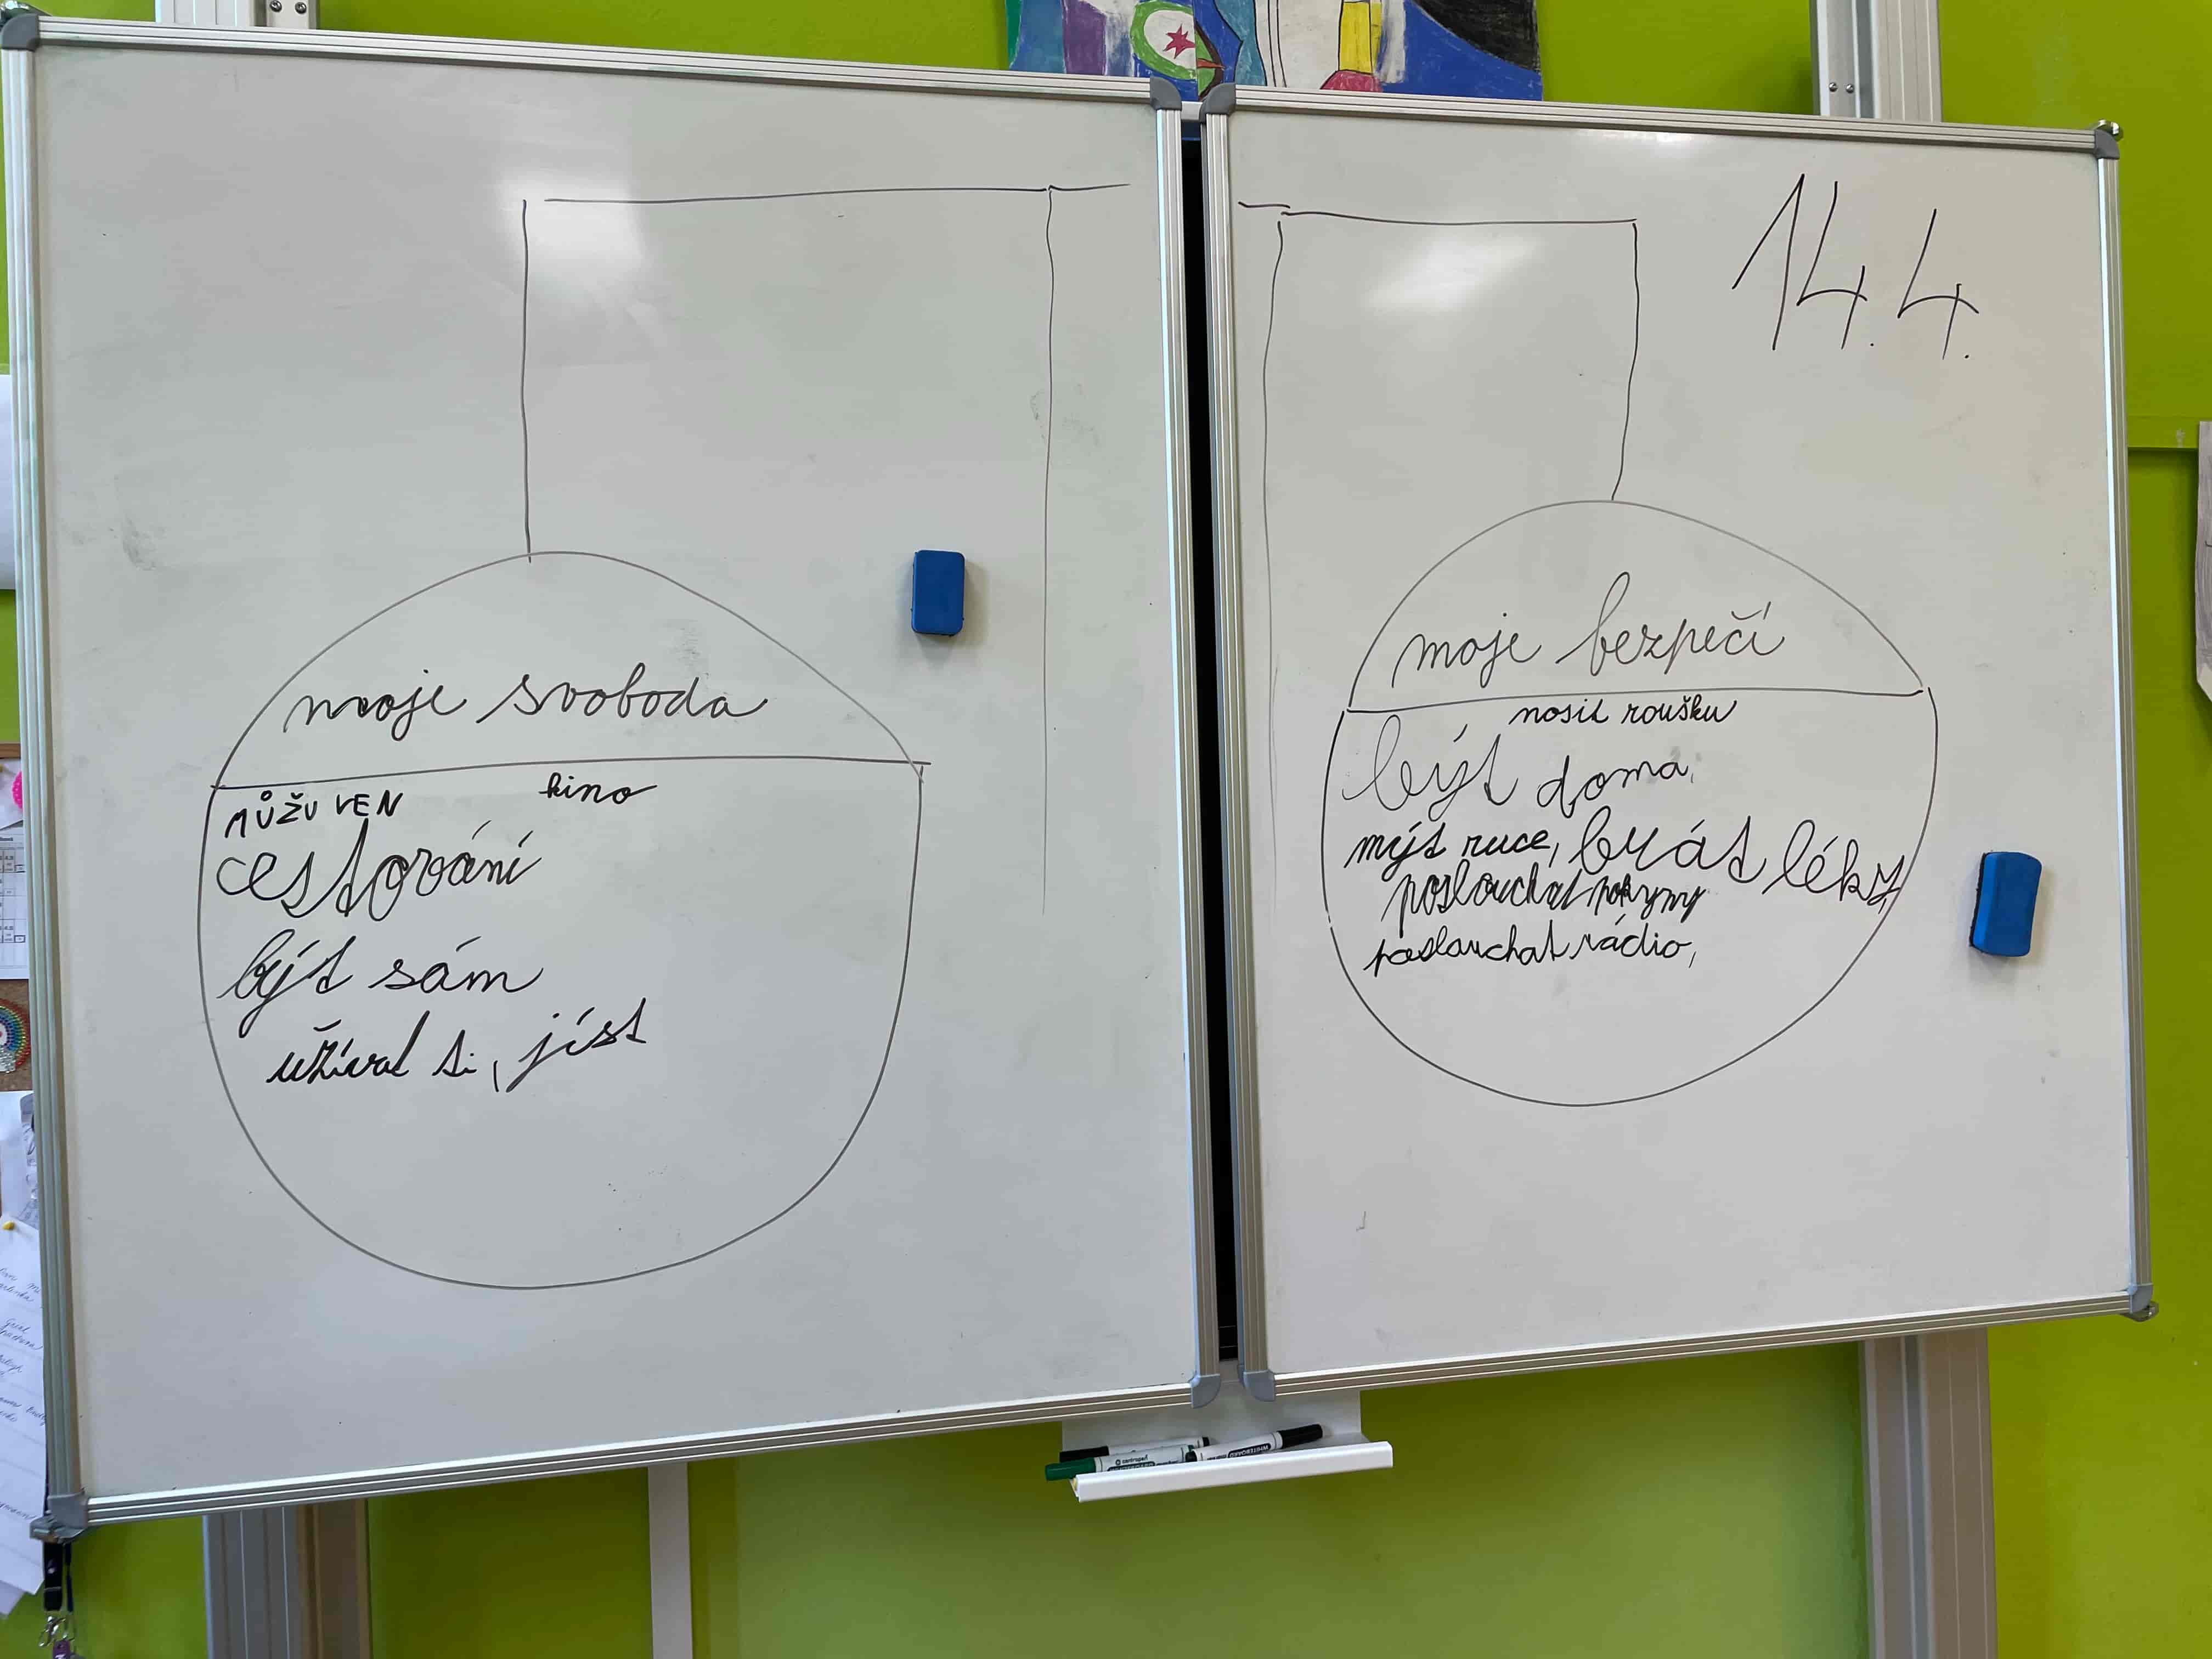 14.4.
moje svoboda
MŮŽU VEN kino
cestování
být sám
užívat si, jíst
moje bezpečí
nosit roušku
být doma,
mýt ruce, brát léky,
poslouchat pokyny
poslouchat rádio,
centropen
WHITEBOARD
WHITEBOARD